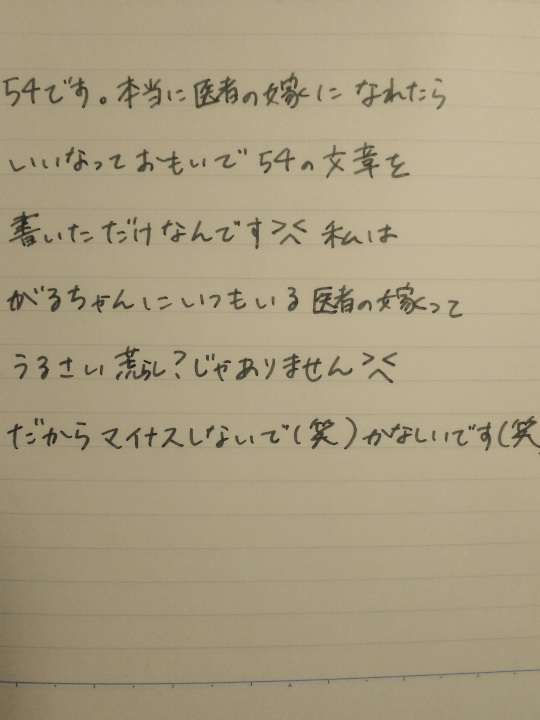 54です。本当に医者の嫁になれたら
いいなっておもいで54の文章を
書いただけなんです><私は
がるちゃんにいつもいる医者の嫁って
うるさい荒らし?じゃありません><
だからマイナスしないで(笑)かなしいです(笑